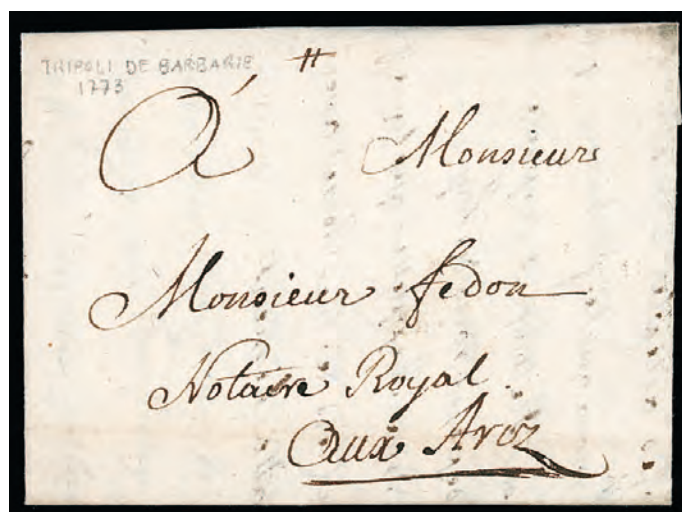 TRIPOLI DE BARBARIE
1773
A Monsieur
Monsieur fedon
Notaire Royal.
aux Arcz